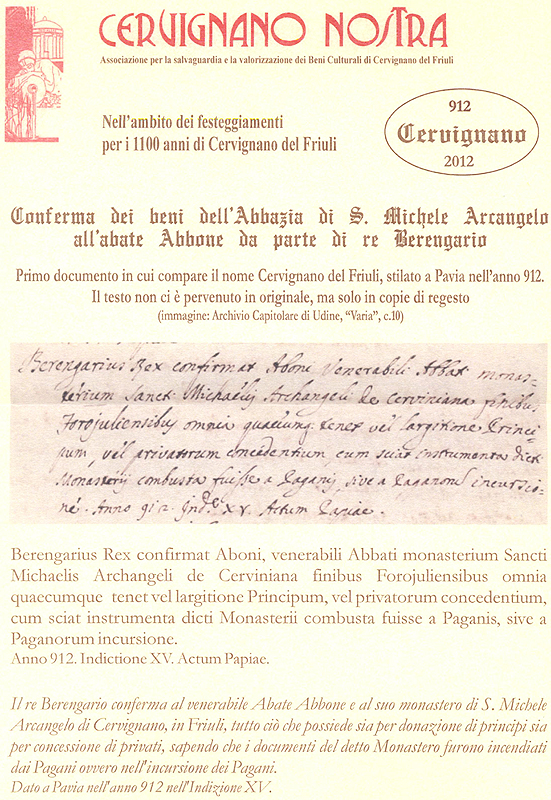 CERVIGNANO NOSTRA
Associazione per la salvaguardia e la valorizzazione dei Beni Culturali di Cervignano del Friuli
Nell'ambito dei festeggiamenti
per i 1100 anni di Cervignano del Friuli
912
Cervignano
2012
Conferma dei beni dell'Abbazia di S. Michele Arcangelo
all'abate Abbone da parte di re Berengario
Primo documento in cui compare il nome Cervignano del Friuli, stilato a Pavia nell'anno 912.
Il testo non ci è pervenuto in originale, ma solo in copie di regesto
(immagine: Archivio Capitolare di Udine, "Varia", c.10)
Berengarius Rex confirmat Aboni Venerabili Abbat monas-
terium Sanct Michaelis Archangeli de Cerviniana finibus
Forojuliensibus omnia quaecung tenet vel largitione Princi-
pum, vel privatorum concedentium cum sciat instrumenta dicti
Monasterij combusta fuisse a Paganis, sive a Paganorum incursio-
ne. Anno 912 Indne XV. Actum Papiae.
Berengarius Rex confirmat Aboni, venerabili Abbati monasterium Sancti
Michaelis Archangeli de Cerviniana finibus Forojuliensibus omnia
quaecumque tenet vel largitione Principum, vel privatorum concedentium,
cum sciat instrumenta dicti Monasterii combusta fuisse a Paganis, sive a
Paganorum incursione.
Anno 912. Indictione XV. Actum Papiae.
Il re Berengario conferma al venerabile Abate Abbone e al suo monastero di S. Michele
Arcangelo di Cervignano, in Friuli, tutto ciò che possiede sia per donazione di principi sia
per concessione di privati, sapendo che i documenti del detto Monastero furono incendiati
dai Pagani ovvero nell'incursione dei Pagani.
Dato a Pavia nell'anno 912 nell'Indizione XV.